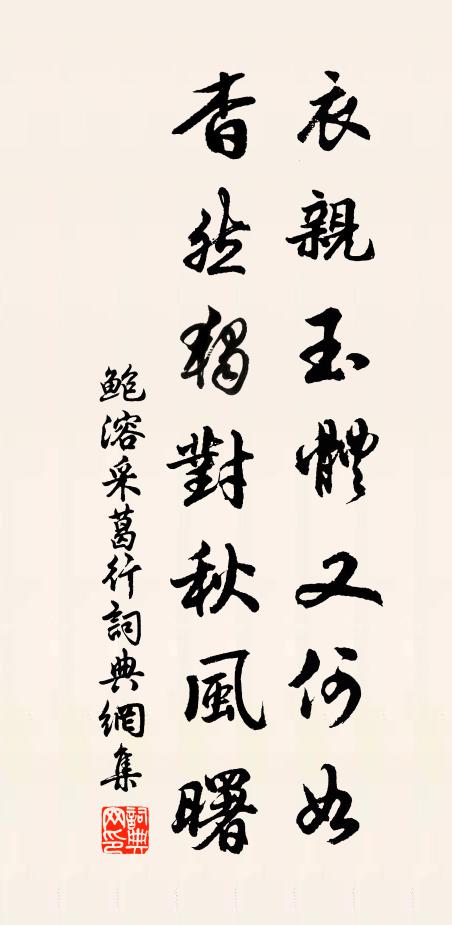 衣親玉體又何如
杳然獨對秋風曙
鮑溶采葛行詞典網集
詞典網印